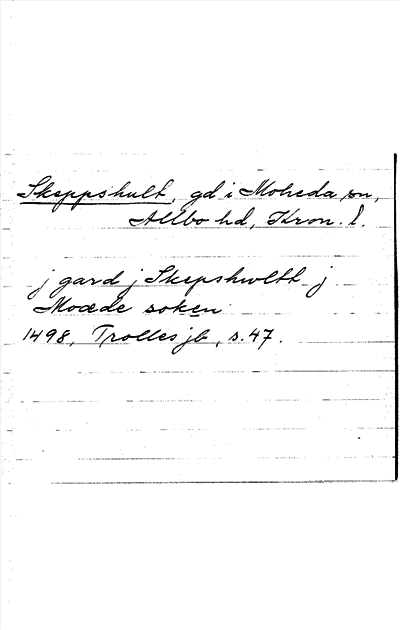 Skeppshult, gd i Moheda sn,
Allbo hd, Kron. l.
j gard j Skepshwltt j
Moæde soken
1498, Trolles jb, s. 47.